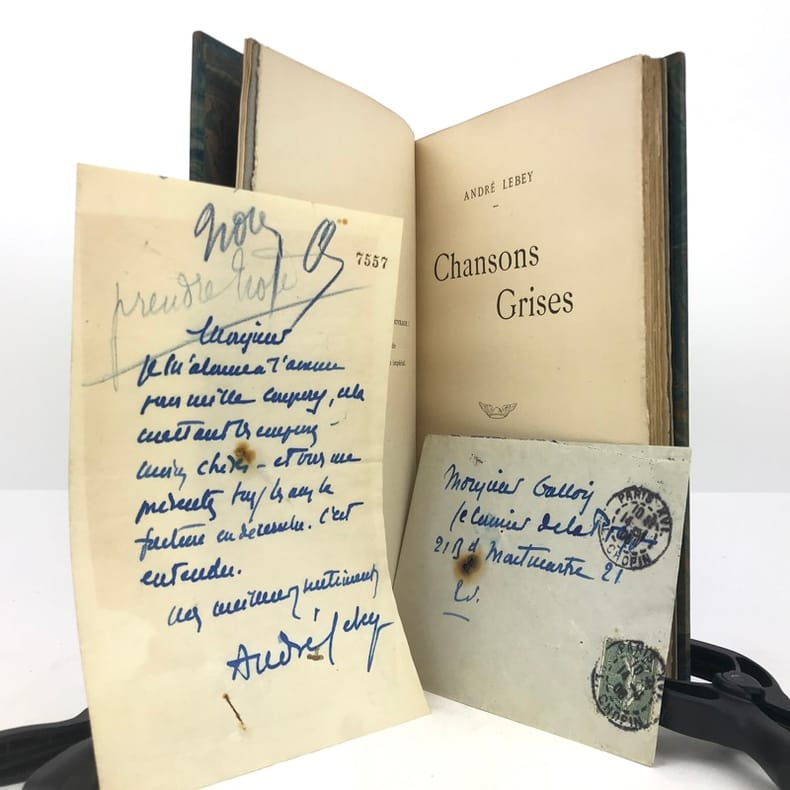 7557
prendre note
Monsieur
Je m'abonne à l'année
pour mille coupures, cela
mettant les coupures
moins chères - et vous me
présentez toujours la
facture en décembre. C'est
entendu.
mes meilleurs sentiments
André Lebey
ANDRÉ LEBEY
Chansons
Grises
impérial.
Monsieur Gallois
le Courrier de la Presse
21 Bd Montmartre 21
PARIS XVI
CHOPIN
PARIS
CHOPIN